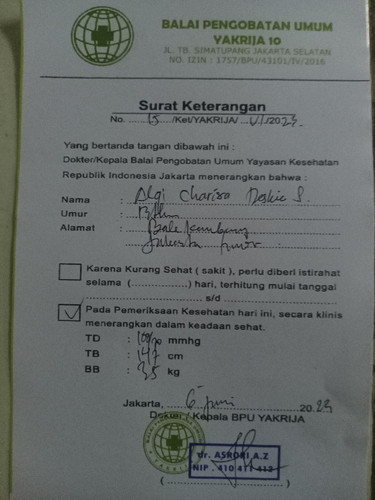 BALAI PENGOBATAN UMUM
YAKRIJA 10
JL. TB. SIMATUPANG JAKARTA SELATAN
NO. IZIN : 1757/BPU/43101/IV/2016
Surat Keterangan
No. 15 /Ket/YAKRIJA/ VI /2023
Yang bertanda tangan dibawah ini :
Dokter/Kepala Balai Pengobatan Umum Yayasan Kesehatan
Republik Indonesia Jakarta menerangkan bahwa :
Nama : Algi Charisa S.
Umur :
Alamat : Bale Kambang
Jakarta Timur
Karena Kurang Sehat ( sakit ), perlu diberi istirahat
selama (...............) hari, terhitung mulai tanggal
s/d
Pada Pemeriksaan Kesehatan hari ini, secara klinis
menerangkan dalam keadaan sehat.
TD : 100/70 mmhg
TB : 147 cm
BB : 35 kg
Jakarta, 6 Juni 2023
Dokter / Kepala BPU YAKRIJA
dr. ASRORI A.Z
NIP . 410 411 412